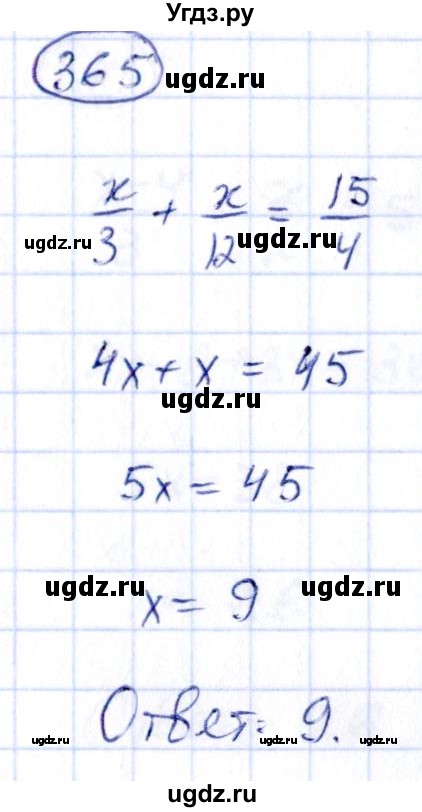 Угдз.ру
365 ugdz.ru
x/3 + x/12 = 15/4
ugdz.ru ugdz.ru
4x + x = 45
ugdz.ru
5x = 45
ugdz.ru ugdz.ru
x = 9
Ответ: 9.
ugdz.ru ugdz.ru ugdz.ru
ugdz.ru